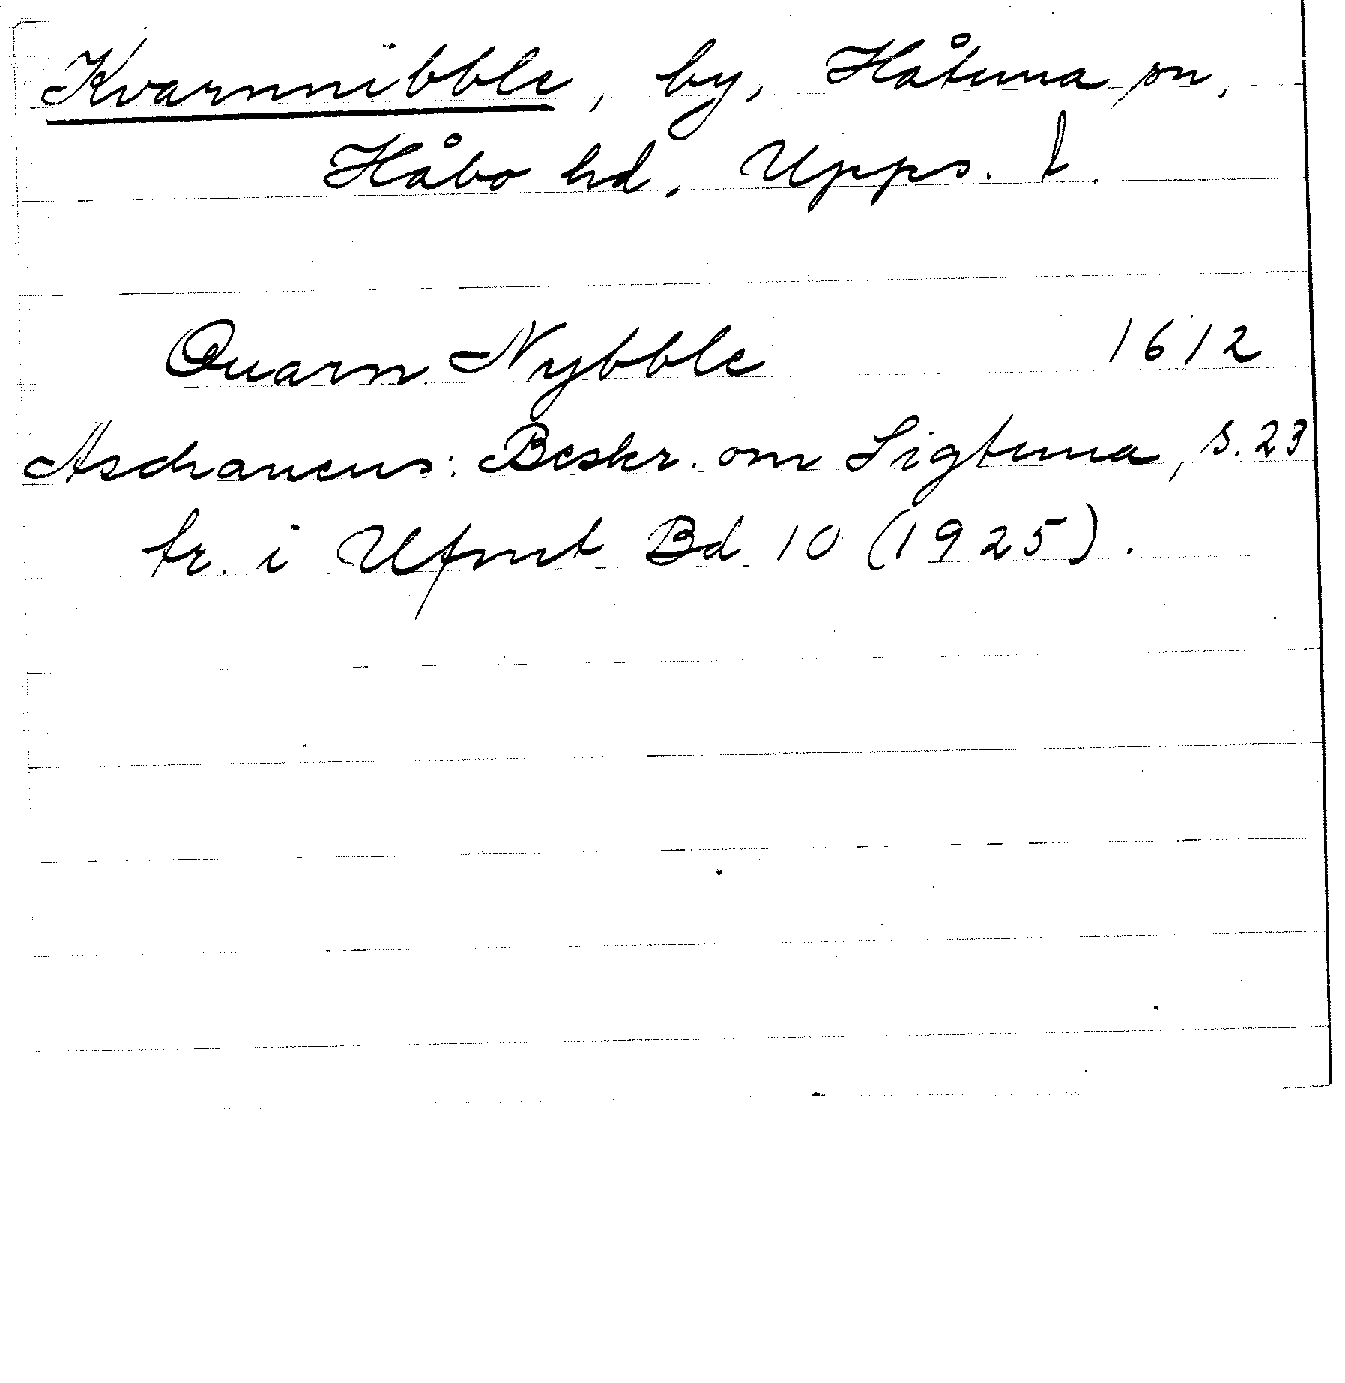 Kvarnnibble, by, Håtuna sn,
Håbo hd, Upps. l.
Quarn Nybble 1612
Aschaneus: Beskr. om Sigtuna, s. 23
tr. i Ufmt Bd 10 (1925).